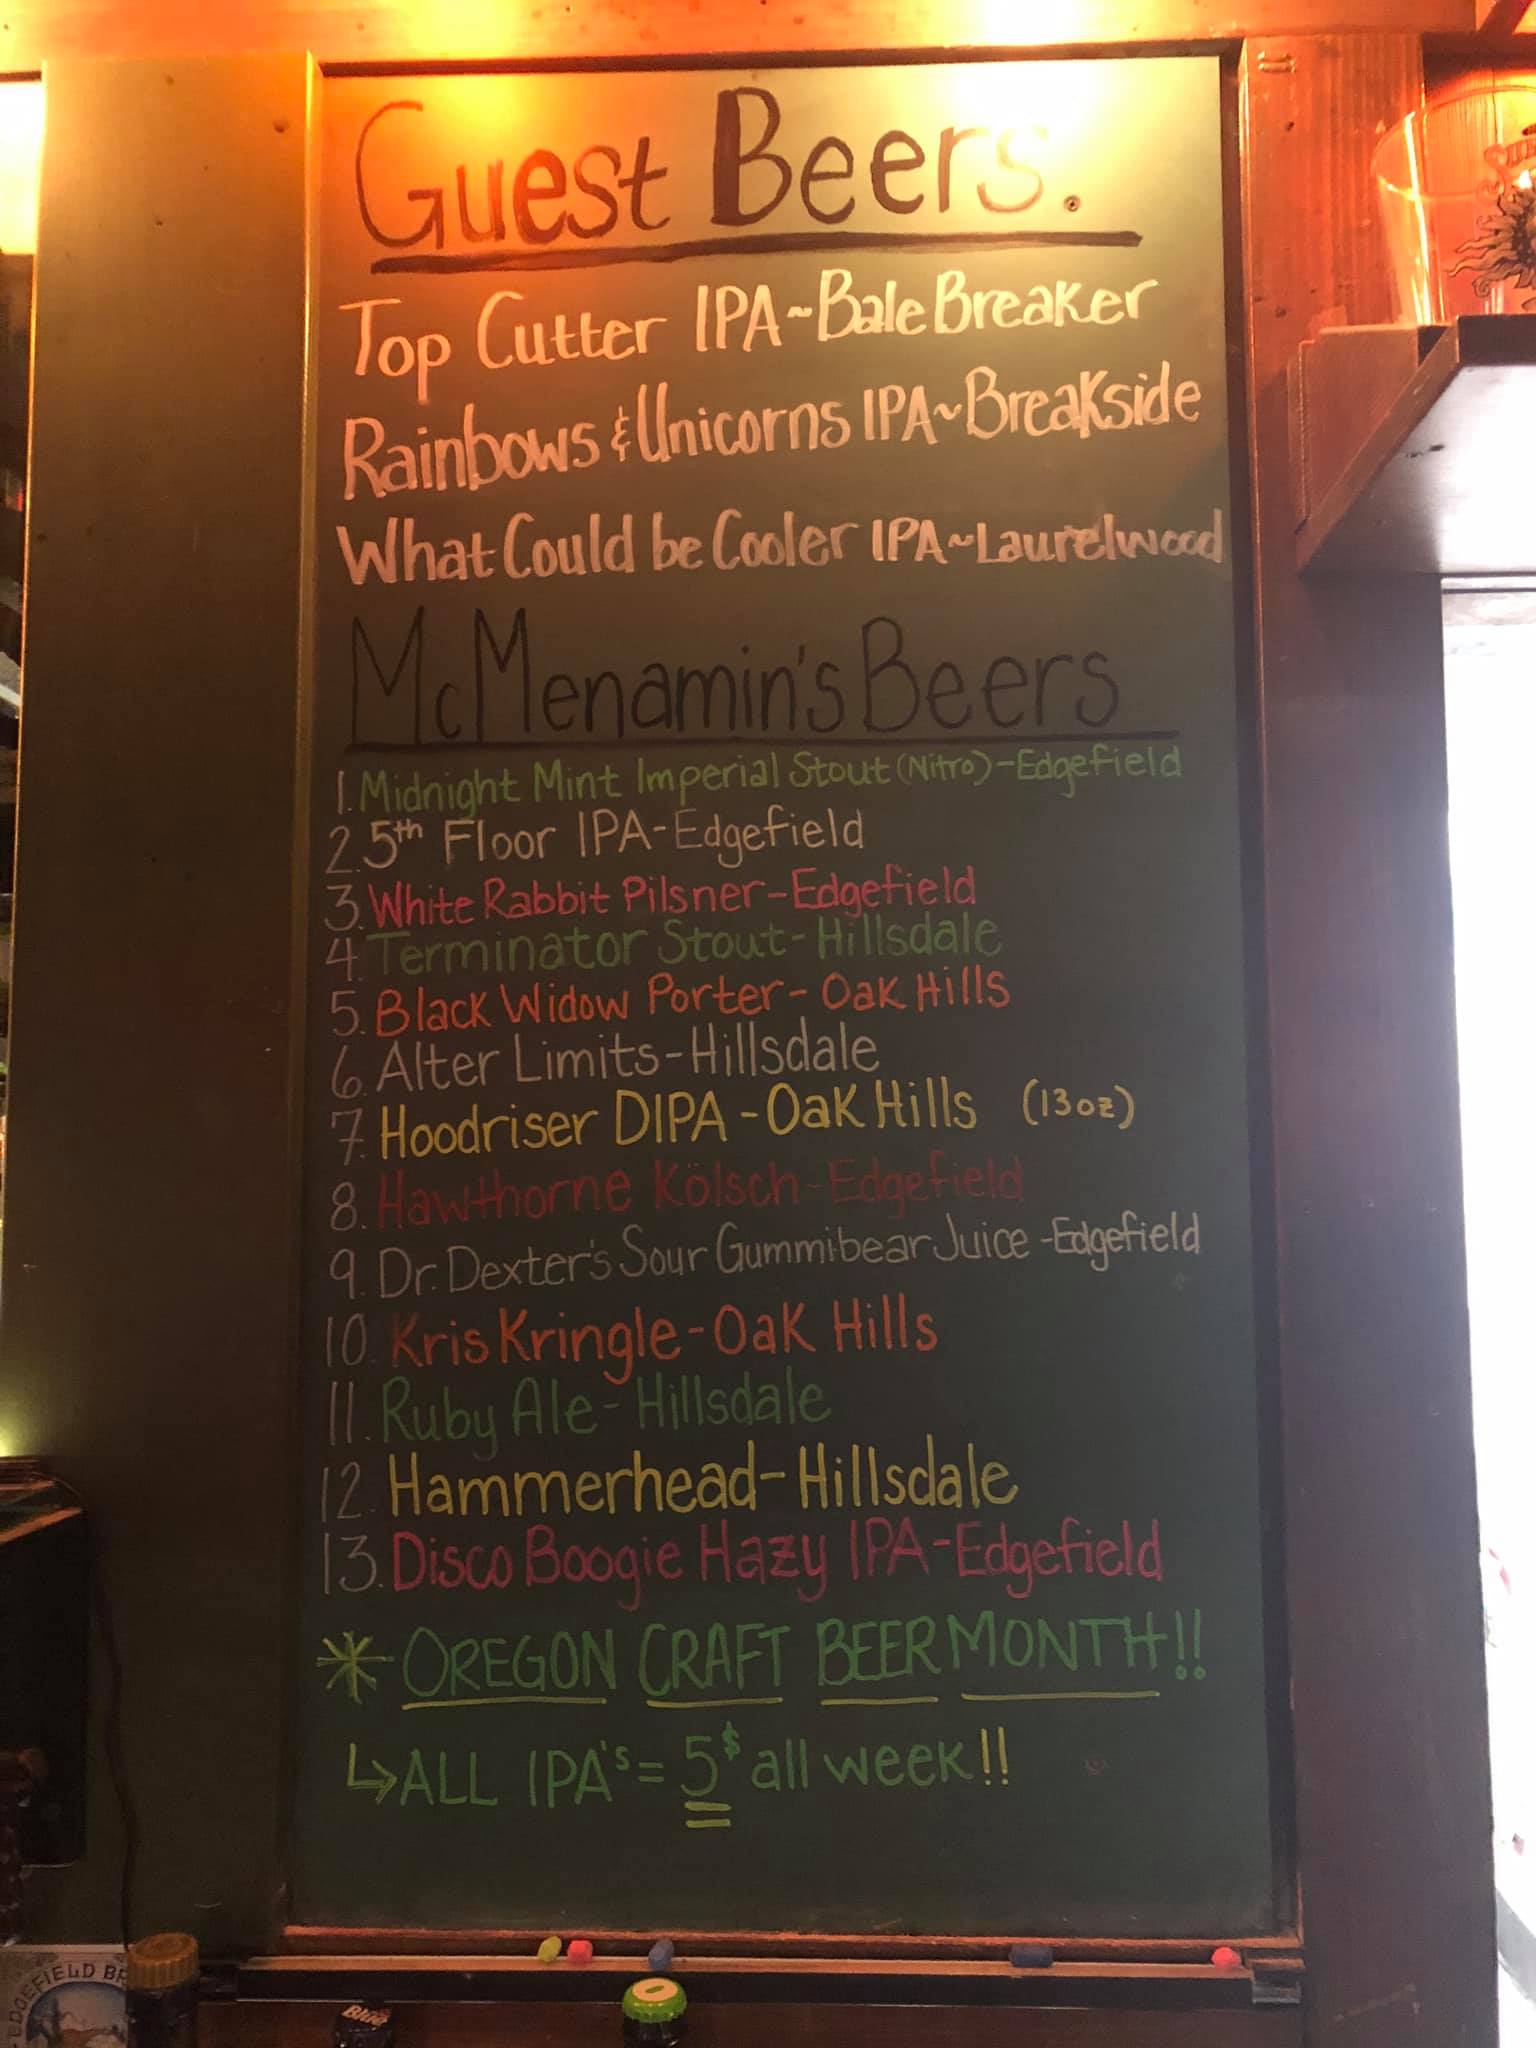 Guest Beers.
Top Cutter IPA~Bale Breaker
Rainbows & Unicorns IPA~Breakside
What Could be Cooler IPA~Laurelwood
McMenamin's Beers
1. Midnight Mint Imperial Stout (Nitro)-Edgefield
2. 5th Floor IPA-Edgefield
3. White Rabbit Pilsner-Edgefield
4. Terminator Stout-Hillsdale
5. Black Widow Porter-Oak Hills
6. Alter Limits-Hillsdale
7. Hoodriser DIPA-Oak Hills (13oz)
8. Hawthorne Kölsch-Edgefield
9. Dr. Dexter's Sour Gummibear Juice-Edgefield
10. Kris Kringle-Oak Hills
11. Ruby Ale-Hillsdale
12. Hammerhead-Hillsdale
13. Disco Boogie Hazy IPA-Edgefield
* OREGON CRAFT BEER MONTH!!
↳ALL IPA's = 5$ all week!!
EDGEFIELD